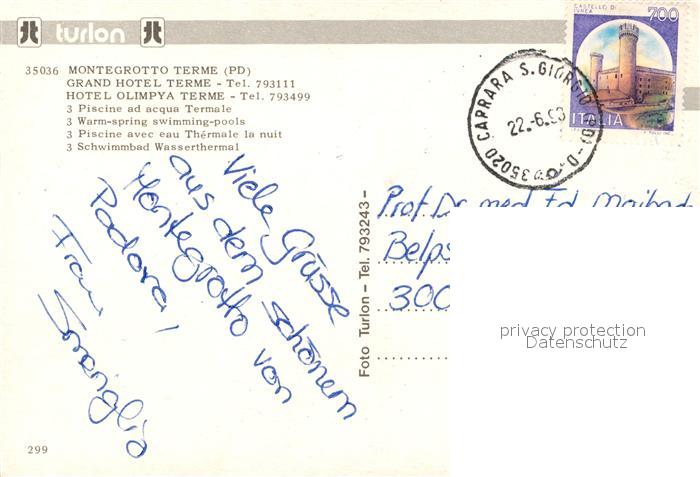 turlon
35036 MONTEGROTTO TERME (PD)
GRAND HOTEL TERME - Tel. 793111
HOTEL OLIMPYA TERME - Tel. 793499
3 Piscine ad acqua Termale
3 Warm-spring swimming-pools
3 Piscine avec eau Thérmale la nuit
3 Schwimmbad Wasserthermal
CASTELLO DI
IVREA
700
ITALIA
35020 CAPRARA S. GIORGIO
22.-6.
Viele Grüsse
aus dem schönem
Montegrotto von
Padova!
Frau
Foto Turlon - Tel. 793243 -
Prof. Dr. med Ed
Belps
300
privacy protection
Datenschutz
299